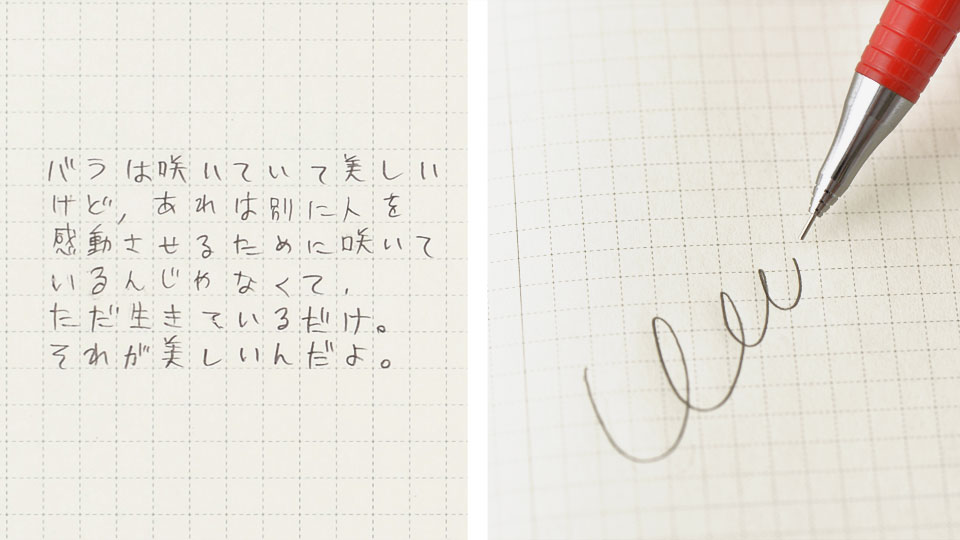 バラは咲いていて美しい
けど、あれは別に人を
感動させるために咲いて
いるんじゃなくて、
ただ生きているだけ。
それが美しいんだよ。